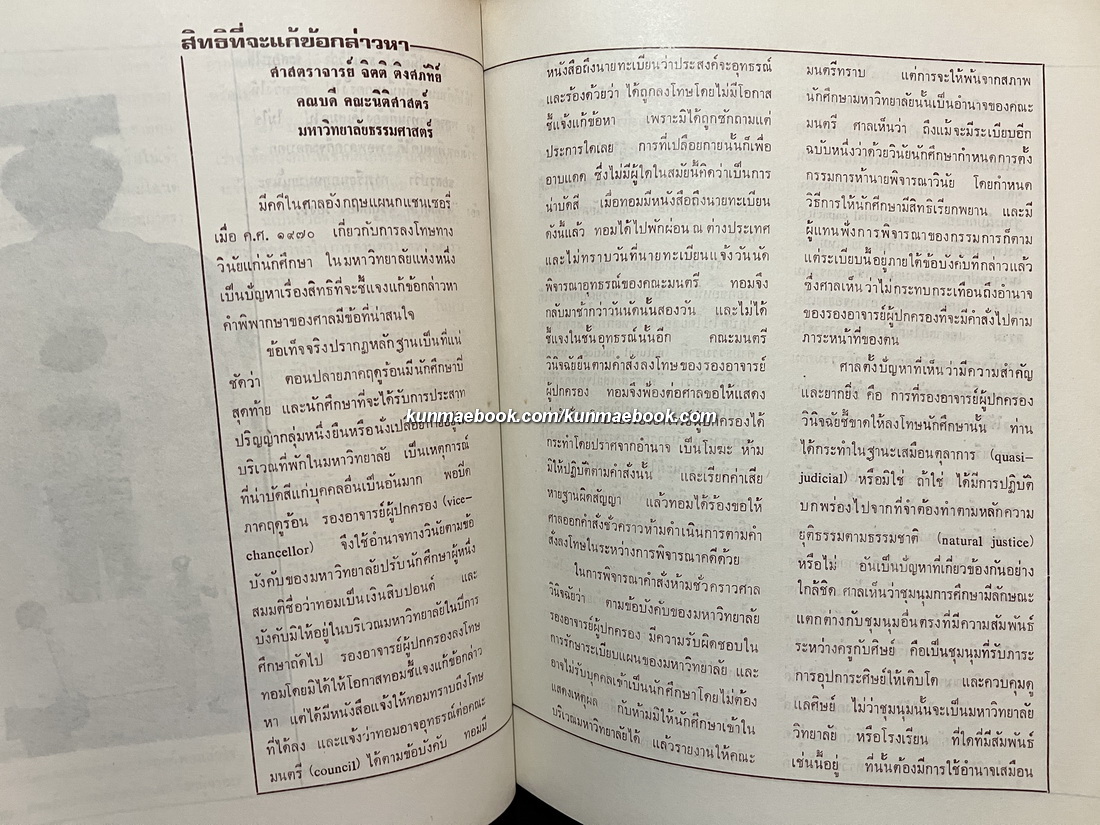 สิทธิที่จะแก้ข้อกล่าวหา
ศาสตราจารย์ จิตติ ติงศภัทิย์
คณบดี คณะนิติศาสตร์
มหาวิทยาลัยธรรมศาสตร์
มีคดีในศาลอังกฤษแผนกแชนเซอรี่
เมื่อ ค.ศ. ๑๙๗๐ เกี่ยวกับการลงโทษทาง
วินัยแก่นักศึกษา ในมหาวิทยาลัยแห่งหนึ่ง
เป็นปัญหาเรื่องสิทธิที่จะชี้แจงแก้ข้อกล่าวหา
คำพิพากษาของศาลมีข้อที่น่าสนใจ
ข้อเท็จจริงปรากฏหลักฐานเป็นที่แน่
ชัดว่า ตอนปลายภาคฤดูร้อนมีนักศึกษาปี
สุดท้าย และนักศึกษาที่จะได้รับการประสาท
ปริญญากลุ่มหนึ่งยืนหรือนั่งเปลือยกายอยู่
บริเวณที่พักในมหาวิทยาลัย เป็นเหตุการณ์
ที่น่าบัดสีแก่บุคคลอื่นเป็นอันมาก พอปิด
ภาคฤดูร้อน รองอาจารย์ผู้ปกครอง (vice-
chancellor) จึงใช้อำนาจทางวินัยตามข้อ
บังคับของมหาวิทยาลัยปรับนักศึกษาผู้หนึ่ง
สมมติชื่อว่าทอมเป็นเงินสิบปอนด์ และ
บังคับมิให้อยู่ในบริเวณมหาวิทยาลัยในปีการ
ศึกษาถัดไป รองอาจารย์ผู้ปกครองลงโทษ
ทอมโดยมิได้ให้โอกาสทอมชี้แจงแก้ข้อกล่าว
หา แต่ได้มีหนังสือแจ้งให้ทอมทราบถึงโทษ
ที่ได้ลง และแจ้งว่าทอมอาจอุทธรณ์ต่อคณะ
มนตรี (council) ได้ตามข้อบังคับ ทอมมี
หนังสือถึงนายทะเบียนว่าประสงค์จะอุทธรณ์
และร้องด้วยว่า ได้ถูกลงโทษโดยไม่มีโอกาส
ชี้แจ้งแก้ข้อหา เพราะมิได้ถูกซักถามแต่
ประการใดเลย การที่เปลือยกายนั้นก็เพื่อ
อาบแดด ซึ่งไม่มีผู้ใดในสมัยนี้คิดว่าเป็นการ
น่าบัดสี เมื่อทอมมีหนังสือถึงนายทะเบียน
ดังนี้แล้ว ทอมได้ไปพักผ่อน ณ ต่างประเทศ
และไม่ทราบวันที่นายทะเบียนแจ้งวันนัด
พิจารณาอุทธรณ์ของคณะมนตรี ทอมจึง
กลับมาช้ากว่าวันนัดนั้นสองวัน และไม่ได้
ชี้แจงในชั้นอุทธรณ์นั้นอีก คณะมนตรี
วินิจฉัยยืนตามคำสั่งลงโทษของรองอาจารย์
ผู้ปกครอง ทอมจึงฟ้องต่อศาลขอให้แสดง
kunmaebook.com/kunmaebook.com
ผู้ปกครองได้
กระทำโดยปราศจากอำนาจ เป็นโมฆะ ห้าม
มิให้ปฏิบัติตามคำสั่งนั้น และเรียกค่าเสีย
หายฐานผิดสัญญา แล้วทอมได้ร้องขอให้
ศาลออกคำสั่งชั่วคราวห้ามดำเนินการตามคำ
สั่งลงโทษในระหว่างการพิจารณาคดีด้วย
ในการพิจารณาคำสั่งห้ามชั่วคราวศาล
วินิจฉัยว่า ตามข้อบังคับของมหาวิทยาลัย
รองอาจารย์ผู้ปกครอง มีความรับผิดชอบใน
การรักษาระเบียบแผนของมหาวิทยาลัย และ
อาจไม่รับบุคคลเข้าเป็นนักศึกษาโดยไม่ต้อง
แสดงเหตุผล กับห้ามมิให้นักศึกษาเข้าใน
บริเวณมหาวิทยาลัยได้ แล้วรายงานให้คณะ
มนตรีทราบ แต่การจะให้พ้นจากสภาพ
นักศึกษามหาวิทยาลัยนั้นเป็นอำนาจของคณะ
มนตรี ศาลเห็นว่า ถึงแม้จะมีระเบียบอีก
ฉบับหนึ่งว่าด้วยวินัยนักศึกษากำหนดการตั้ง
กรรมการห้านายพิจารณาวินัย โดยกำหนด
วิธีการให้นักศึกษามีสิทธิเรียกพยาน และมี
ผู้แทนฟังการพิจารณาของกรรมการก็ตาม
แต่ระเบียบนี้อยู่ภายใต้ข้อบังคับที่กล่าวแล้ว
ซึ่งศาลเห็นว่าไม่กระทบกระเทือนถึงอำนาจ
ของรองอาจารย์ผู้ปกครองที่จะมีคำสั่งไปตาม
ภาระหน้าที่ของตน
ศาลตั้งปัญหาที่เห็นว่ามีความสำคัญ
และยากยิ่ง คือ การที่รองอาจารย์ผู้ปกครอง
วินิจฉัยชี้ขาดให้ลงโทษนักศึกษานั้น ท่าน
ได้กระทำในฐานะเสมือนตุลาการ (quasi-
judicial) หรือมิใช่ ถ้าใช่ ได้มีการปฏิบัติ
บกพร่องไปจากที่จำต้องทำตามหลักความ
ยุติธรรมตามธรรมชาติ (natural justice)
หรือไม่ อันเป็นปัญหาที่เกี่ยวข้องกันอย่าง
ใกล้ชิด ศาลเห็นว่าชุมนุมการศึกษามีลักษณะ
แตกต่างกับชุมนุมอื่นตรงที่มีความสัมพันธ์
ระหว่างครูกับศิษย์ คือเป็นชุมนุมที่รับภาระ
การอุปการะศิษย์ให้เติบโต และควบคุมดู
แลศิษย์ ไม่ว่าชุมนุมนั้นจะเป็นมหาวิทยาลัย
วิทยาลัย หรือโรงเรียน ที่ใดที่มีสัมพันธ์
เช่นนี้อยู่ ที่นั้นต้องมีการใช้อำนาจเสมือน